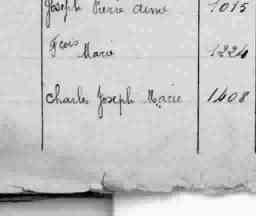 Joseph Pierre aimé 1015
Fcois Marie 1224
Charles Joseph Marie 1408